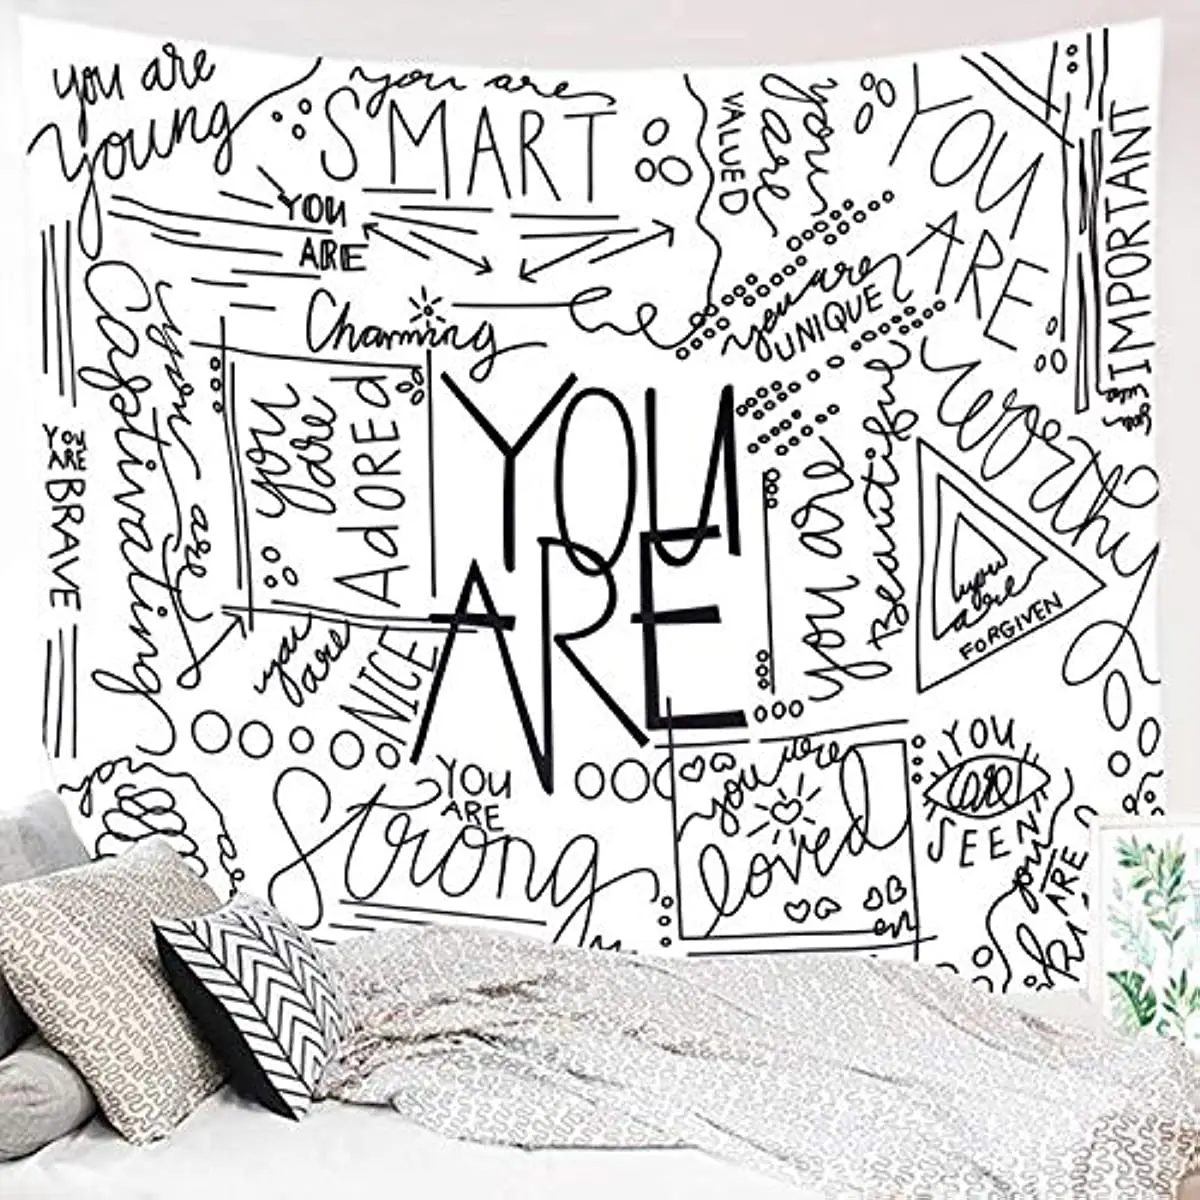 you are
young
you are
SMART
YOU
ARE
Charming
you are
VALUED
you are
UNIQUE
YOU
ARE
worthy
you are
IMPORTANT
YOU
ARE
BRAVE
you are
Captivating
you are
AdORED
YOU
ARE
you are
Beautiful
you are
FORGIVEN
you are
NICE
YOU
ARE
Strong
you are
loved
YOU
are
SEEN
you
ARE